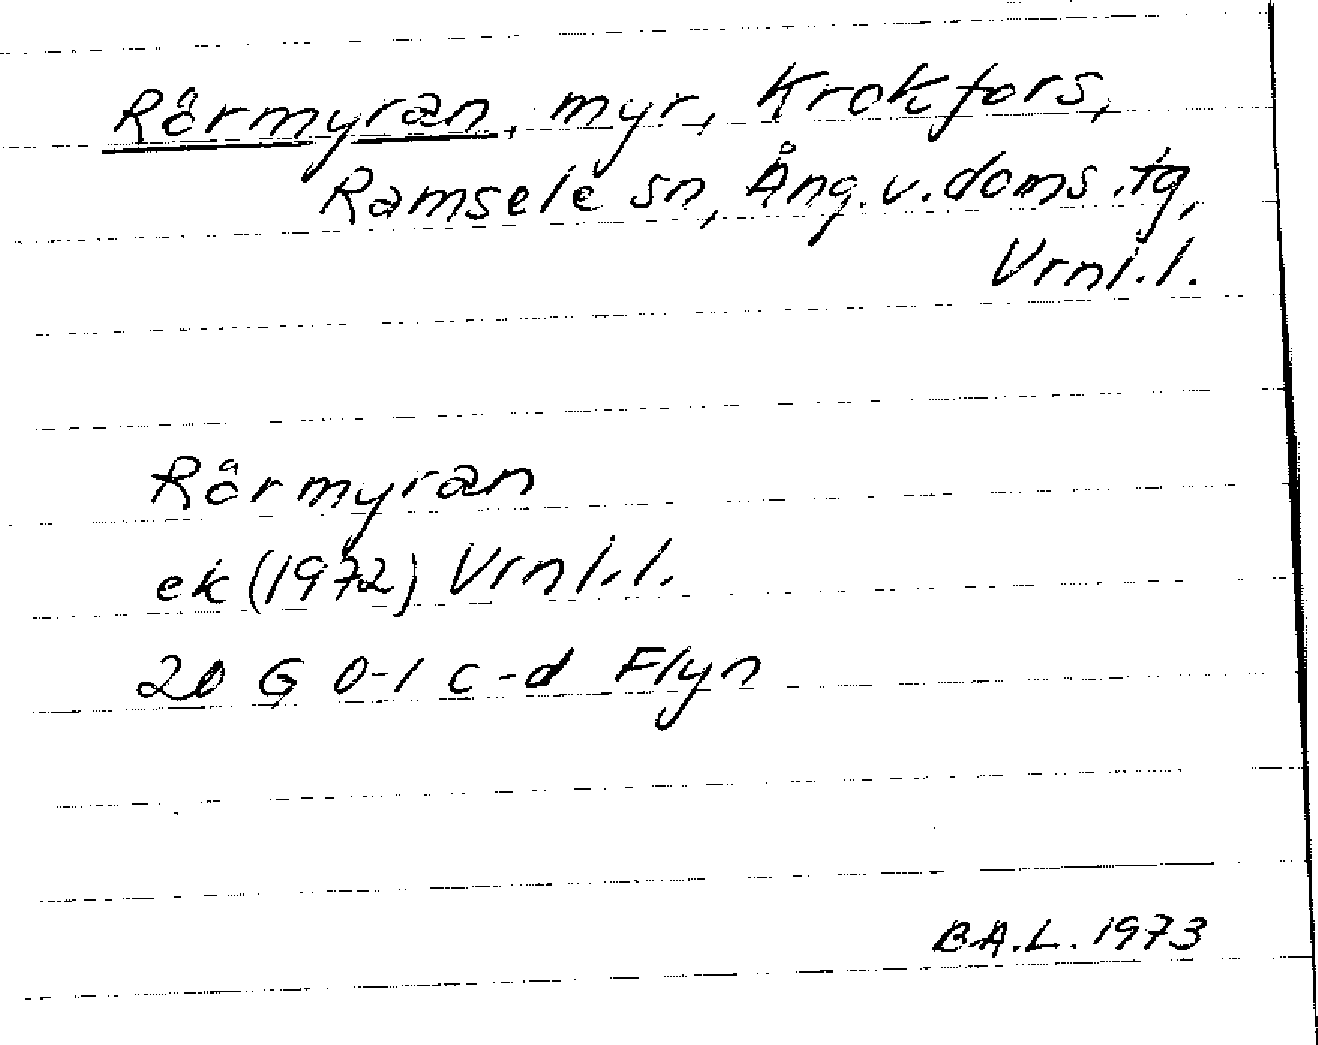 Rörmyran, myr, Krokfors,
Ramsele sn, Ång. v. doms. tg,
Vrnl.l.
Rörmyran
ek (1972) Vrnl.l.
20 G 0-1 c-d Flyn
B.A.L. 1973